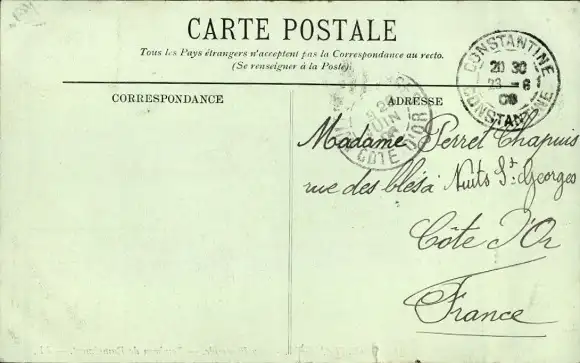 CARTE POSTALE
Tous les Pays étrangers n'acceptent pas la Correspondance au recto.
(Se renseigner à la Poste)
CONSTANTINE
20 30
23 - 6
08
CONSTANTINE
CORRESPONDANCE
ADRESSE
JUIN
CÔTE D'OR
Madame Perret Chapuis
rue des blés à Nuits St Georges
Côte d'Or
France